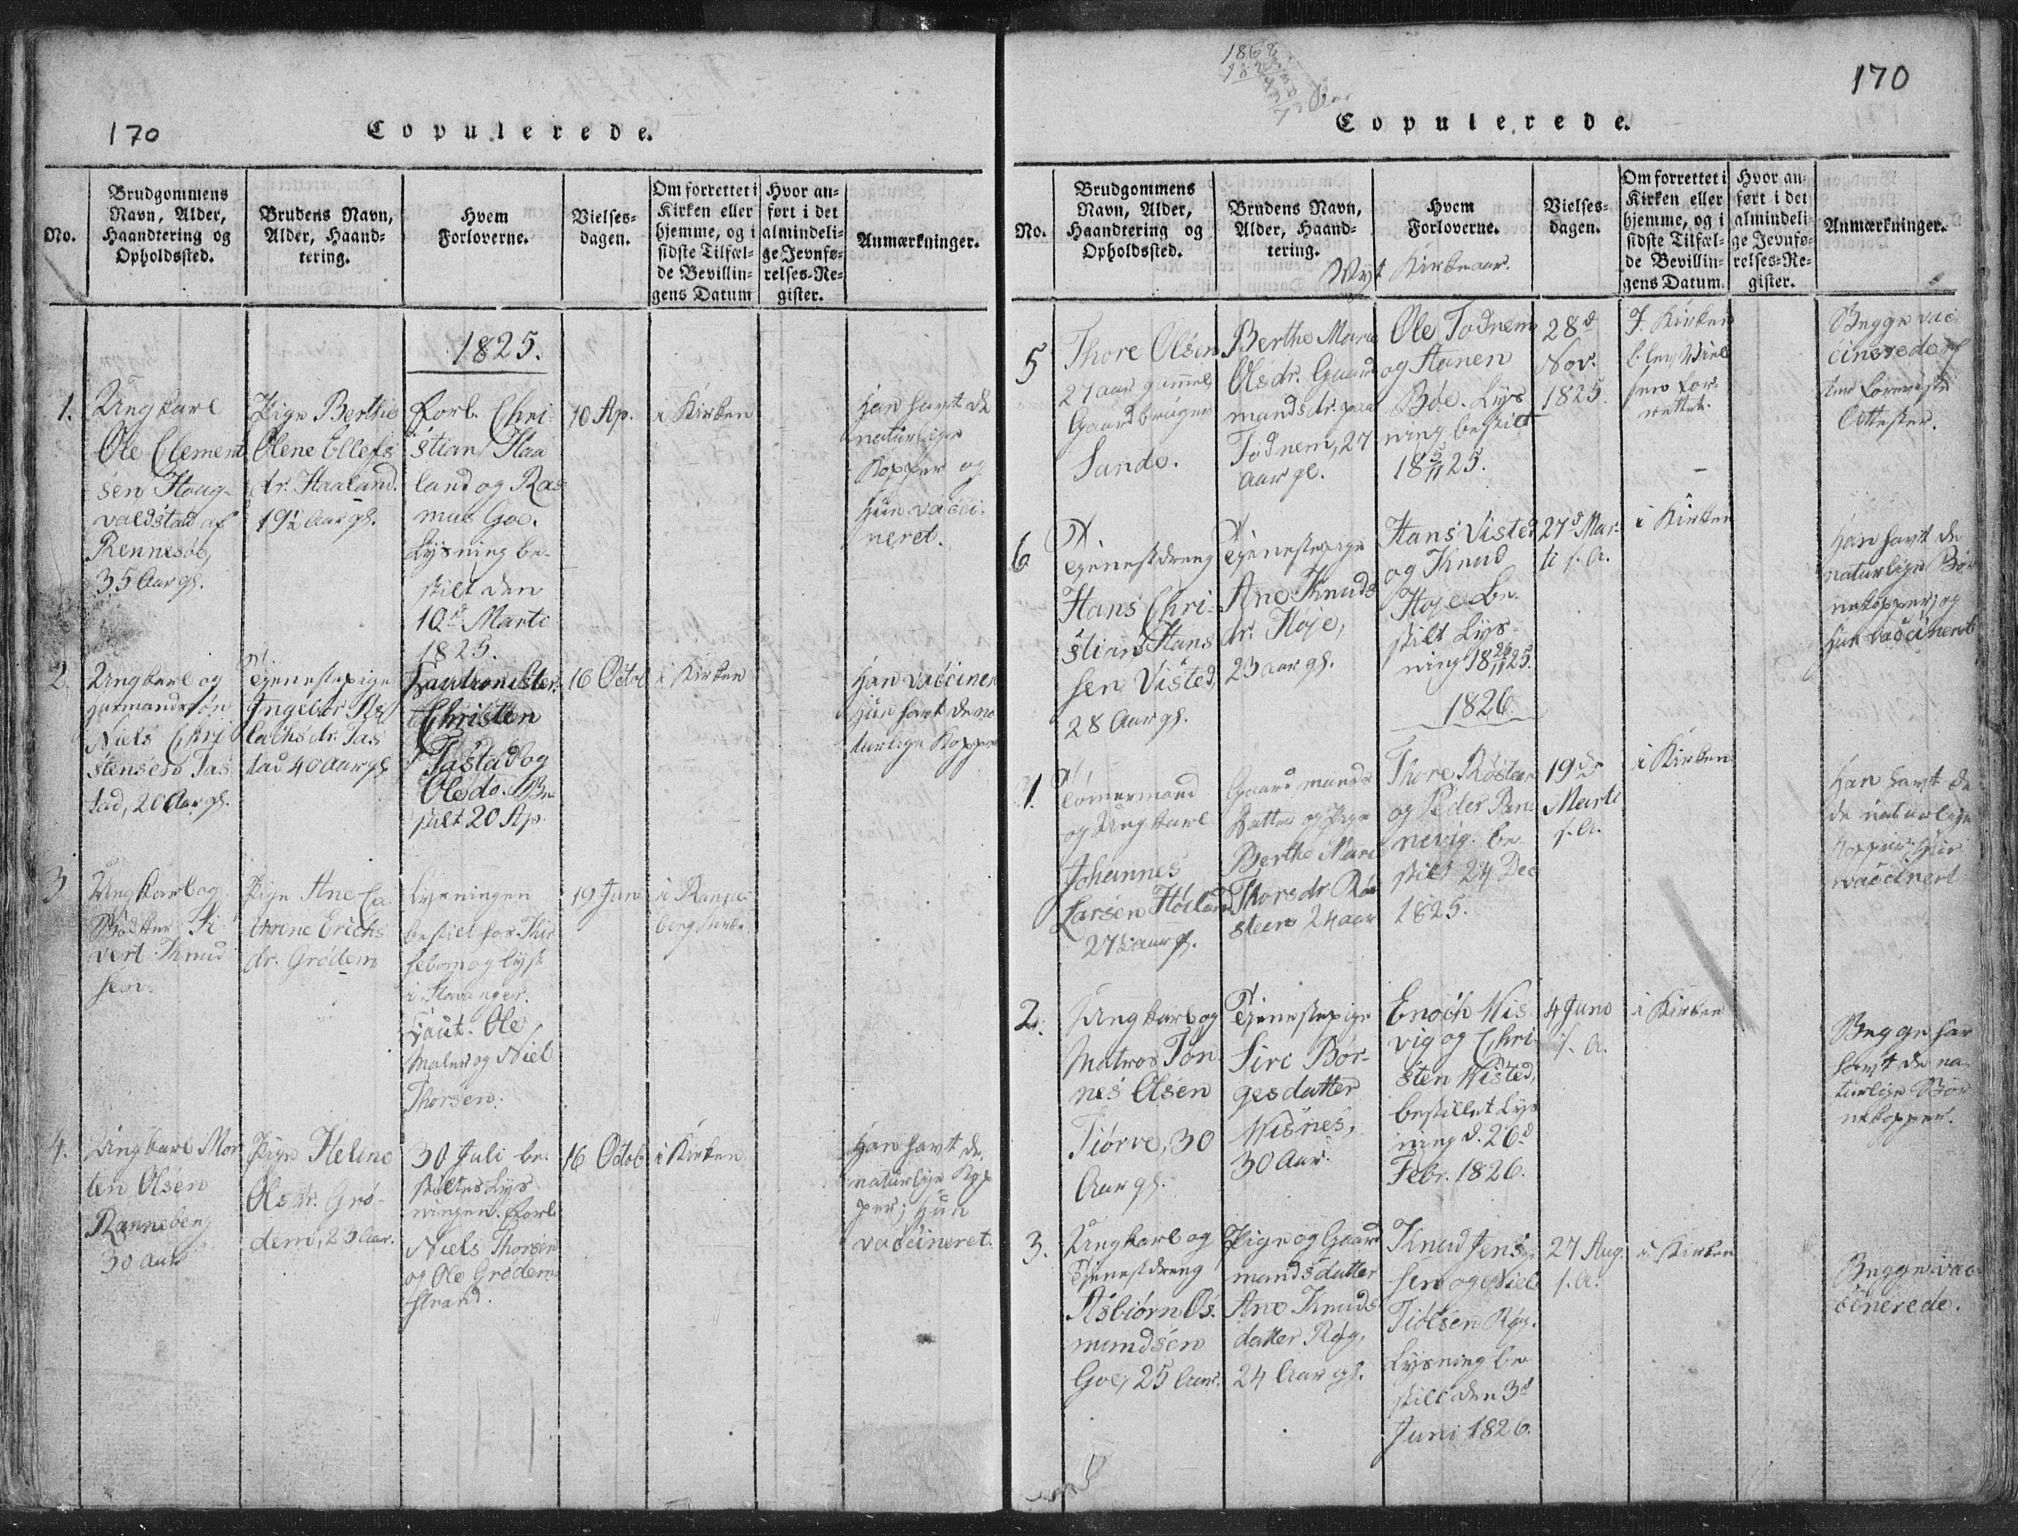 170
Copulerede.
No.
Brudgommens
Navn, Alder,
Haandtering og
Opholdssted.
Brudens Navn,
Alder, Haand-
tering.
Hvem
Forloverne.
Vielses-
dagen.
Om forrettet i
Kirken eller
hjemme, og i
sidste Tilfæl-
de Bevillin-
gens Datum
Hvor an-
ført i det
almindeli-
ge Jevnfø-
relses-Re-
gister.
Anmærkninger.
1825.
1.
Ungkarl
Ole Clement
sen Houg-
valdstad af
Rennesøe,
35 Aar gl.
Pige Berthe
Olene Ellefs
dr. Haaland.
19½ Aar gl.
Forl. Chri-
stian Haa
land og Ras
mus Goe.
Lysning be-
stilt den
10d Marti
1825.
10 Ap.
i Kirken
Han havt de
naturlige
Kopper og
Hun vacci-
neret.
2
Ungkarl og
Niels Chri
stensen Tas
tad, 20 Aar gl.
Tjenestepige
Ingebor
lachs dr. Tas
tad 40 Aar gl.
Christen
Tastad og
Ole do. Be
stilt 20 Ap.
16 Octob
i Kirken
Han vaccine
Hun havt de na
turlige Kopper
3
Ungkarl og
Bødker Si
vert Knud
sen
Pige Ane Ca
thrine Erichs
dr. Grødem
Lysningen
bestilt for Thir
og lyst
i Stavanger.
Caut. Ole
Maler og Niel
Thorsen.
19 Jun
i
4.
Ungkarl Mor
ten Olsen
Ranneberg
30 Aar
Pige Helene
Ols dr. Grø-
dem, 23 Aar.
30 Juli be-
stiltes Lys-
ningen. Forl.
Niels Thorsen
og Ole Grødem
strand.
16 Octob
i Kirken
Han havt de
naturlige Kop
per; Hun
vaccineret.
1868
170
Copulerede.
No.
Brudgommens
Navn, Alder,
Haandtering og
Opholdssted.
Brudens Navn,
Alder, Haand-
tering.
Hvem
Forloverne.
Vielses-
dagen.
Om forrettet i
Kirken eller
hjemme, og i
sidste Tilfæl-
de Bevillin-
gens Datum.
Hvor an-
ført i det
almindeli-
ge Jevnfø-
relses-Re-
gister.
Anmærkninger.
Nyt Kirkeaar.
5
Thore Olsen
27 aar gammel
Gaardbruger
Sande.
Berthe Maria
Olsdr. Gaard
mandsdr. paa
Todnem, 27
aar gl.
Ole Todnem
og Hanen
Bøe. Lys
ning bestilt
18 5/11 25.
28d
Nov.
1825.
I Kirken
blev Viel
sen for-
rettet.
Begge vac-
cinerede
Attester.
6
Tjenestdreng
Hans Chri-
stian Hans
sen Visted,
28 Aar gl.
Tjenestepige
Ane Knuds
dr. Høje,
23 aar gl.
Hans Visted
og Knud
Hoje. Be-
stilt Lys-
ning 18 26/11 25.
27d Mar-
ti s. A.
i Kirken
Han havt de
naturlige Bør
nekopper, og
Hun vaccineret
1826.
1.
Tømermand
og Ungkarl
Johannes
Larsen
27½ aar gl.
Gaardmands
Datter og Pige
Berthe Mari
Thorsdr.
steen 24 aar
Thore
og Peder
nevig. be
stilt 24 Dec
1825.
19de
Marti
s. A.
i Kirken
Han havt de
de naturlige
Kopper. Hun
vaccineret
2.
Ungkarl og
Matros Tøn
nes Olsen
Tiørve, 30
Aar gl.
Tjenestepige
Siri Bør-
gesdatter
Wisnes,
30 Aar.
Enoch Wis
vig og Chri-
sten Wisted,
bestillet Lys
ning d. 26d
Febr. 1826.
4 Juno
s. A.
i Kirken
Begge har
havt de na-
turlige Bør
nekopper.
3.
Ungkarl og
Tjenestdreng
Asbiørn Os-
mundsen
Goe, 25 Aar.
Pige og Gaard
mandsdatter
Ane Knuds-
datter Røg,
24 Aar gl.
Knud Jens
sen og Niels
Tiølsen Røg.
Lysning be
stilt den 3d
Juni 1826.
27 Aug.
s. A.
i Kirken
Begge vac
cinerede.